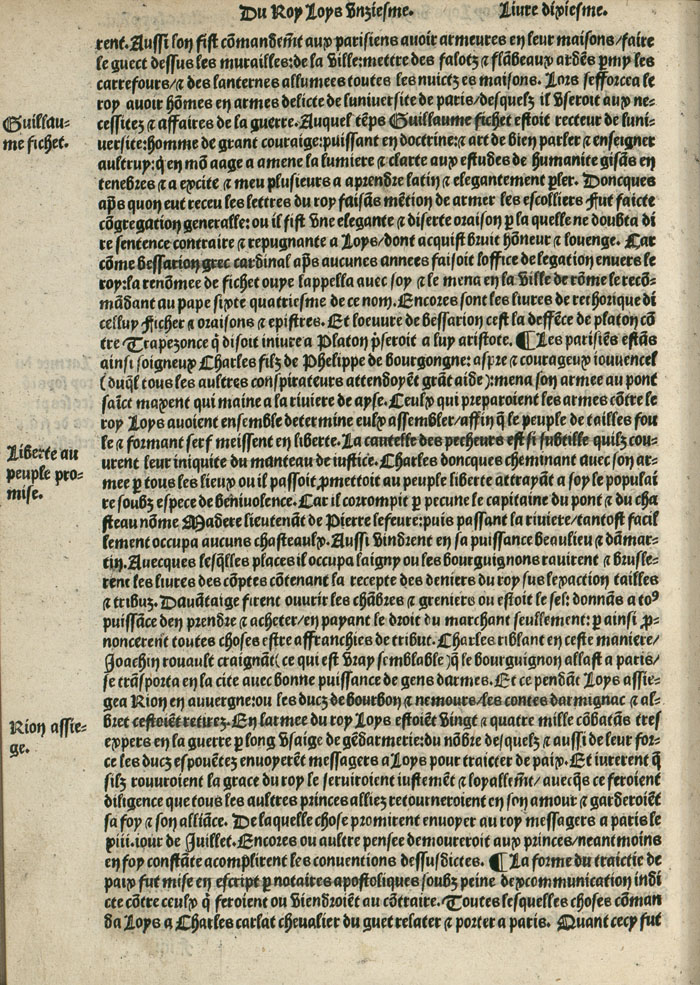 Du Roy Loys vnziesme. Liure dixiesme.
rent. Aussi lon fist cõmandem̃t aux parisiens auoir armeures en leur maisons/faire
le guect dessus les murailles: de la ville: mettre des falotz ⁊ flãbeaux ardẽs pmy les
carrefours/⁊ des lanternes allumees toutes les nuictz es maisons. Lors sefforcea le
roy auoir hõmes en armes delicte de luniuersite de paris/desquelz il vseroit aux ne-
Guillau-
me fichet.
cessitez ⁊ affaires de la guerre. Auquel tẽps Guillaume fichet estoit recteur de luni-
uersite: homme de grant couraige: puissant en doctrine: ⁊ art de bien parler ⁊ enseigner
aultruy: q̃ en mõ aage a amene la lumiere ⁊ clarte aux estudes de humanite gisãs en
tenebres ⁊ a excite ⁊ meu plusieurs a aprendre latin ⁊ elegantement ꝑler. Doncques
aps̃ quon eut receu les lettres du roy faisãs mẽtion de armer les escolliers Fut faicte
cõgregation generalle: ou il fist vne elegante ⁊ diserte oraison ꝑ la quelle ne doubta di
re sentence contraire ⁊ repugnante a Loys/dont acquist bruit hõneur ⁊ louenge. Car
cõme bessarion grec cardinal aps̃ aucunes annees faisoit loffice de legation enuers le
roy: la renõmee de fichet ouye lappella auec soy ⁊ le mena en la ville de rõme le recõ-
mãdant au pape sixte quatriesme de ce nom. Encores sont les liures de rethorique di
celluy Fichet ⁊ oraisons ⁊ epistres. Et loeuure de bessarion cest la deffẽce de platon cõ
tre Trapezonce q̃ disoit iniure a Platon p̃seroit a luy aristote. ¶ Les parisiẽs estãs
ainsi soigneux Charles filz de Phelippe de bourgongne: aspre ⁊ courageux iouuencel
(duq̃l tous les aultres conspirateurs attendoyẽt grãt aide): mena son armee au pont
saĩct maxent qui maine a la riuiere de ayse. Ceulx qui preparoient les armes cõtre le
roy Loys auoient ensemble determine eulx assembler/affin q̃ le peuple de tailles fou
le ⁊ formant serf meissent en liberte. La cautelle des pecheurs est si subtille quilz cou-
Liberte au
peuple pro-
mise.
urent leur iniquite du manteau de iustice. Charles doncques cheminant auec son ar-
mee ꝑ tous les lieux ou il passoit ꝓmettoit au peuple liberte attrayãt a soy le populai
re soubz espece de beniuolence. Car il corrompit ꝑ pecune le capitaine du pont ⁊ du cha
steau nõme Madere lieutenãt de Pierre lefeure: puis passant la riuiere/tantost facil
lement occupa aucuns chasteaulx. Aussi vindrent en sa puissance beaulieu ⁊ dãmar-
tin. Auecques lesq̃lles places il occupa laigny ou les bourguignons rauirent ⁊ brusle-
rent les liures des cõptes cõtenant la recepte des deniers du roy sus lexaction tailles
⁊ tributz. Dauãtaige firent ouurir les chãbres ⁊ greniers ou estoit le sel: donnãs a toꝰ
puissãce den prendre ⁊ acheter/en payant le droit du marchant seullement: ꝑ ainsi ꝓ-
noncerent toutes choses estre affranchies de tribut. Charles riblant en ceste maniere/
Joachin rouault craignãt (ce qui est vray semblable) q̃ le bourguignon allast a paris/
se trãsporta en la cite auec bonne puissance de gens darmes. Et ce pendãt Loys assie-
gea Rion en auuergne: ou les ducz de bourbon ⁊ nemours/les contes darmignac ⁊ al-
Rion assie-
ge.
bret cestoiẽt retirez. En larmee du roy Loys estoiẽt vingt ⁊ quatre mille cõbatãs tres
expers en la guerre ꝑ long vsaige de gẽdarmerie: du nõbre desquelz ⁊ aussi de leur for-
ce les ducz espouẽtez enuoyerẽt messagers a Loys pour traicter de paix. Et iurerent q̃
silz rouuroient la grace du roy le seruiroient iustemẽt ⁊ loyallem̃t/auecq̃s ce feroient
diligence que tous les aultres princes alliez retourneroient en son amour ⁊ garderoiẽt
sa foy ⁊ son alliãce. De laquelle chose promirent enuoyer au roy messagers a paris le
xiii. iour de Juillet. Encores ou aultre pensee demoureroit aux princes/neant moins
en foy constãte acomplirent les conuentions dessusdictes. ¶ La forme du traictie de
paix fut mise en escript ꝑ notaires apostoliques soubz peine dexcommunication indi
cte cõtre ceulx q̃ feroient ou viendroiẽt au cõtraire. Toutes lesquelles choses cõman
da Loys a Charles carlat cheualier du guet relater ⁊ porter a paris. Quant cecy fut